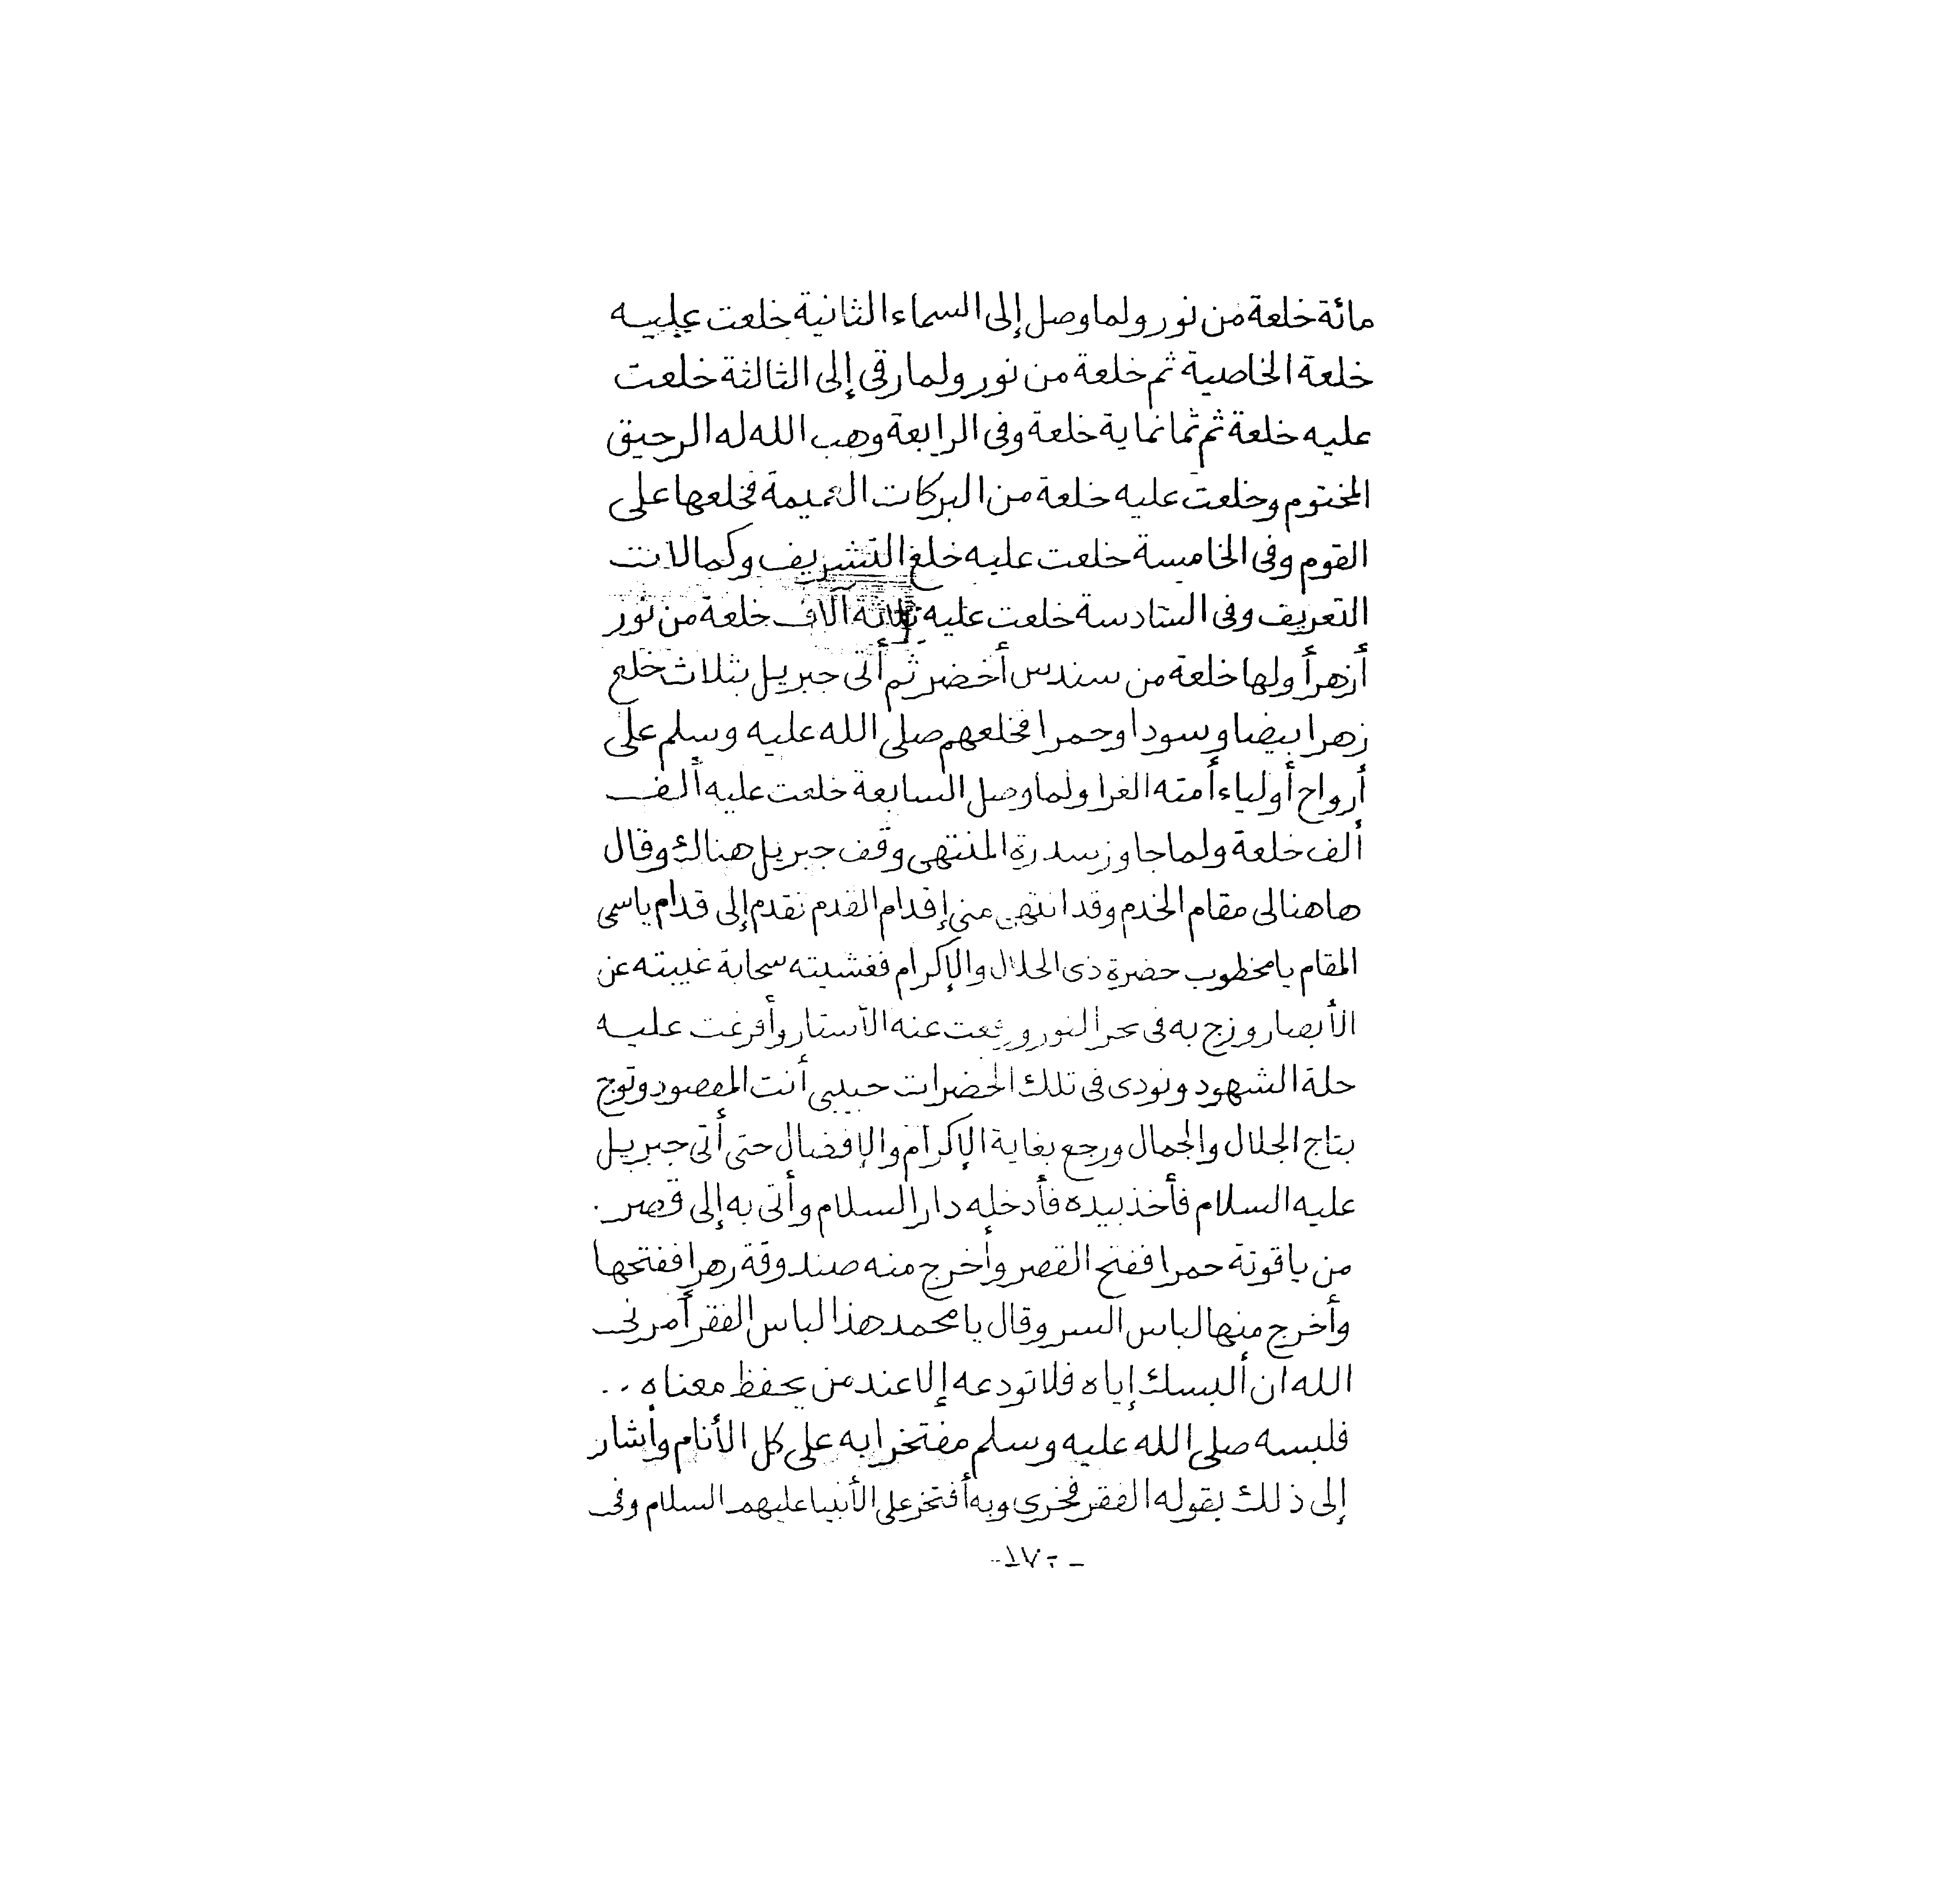 مائة خلعة من نور ولما وصل إلى السماء الثانية خلعت عليه
خلعة الخاصية ثم خلعة من نور ولما رقى إلى الثالثة خلعت
عليه خلعة ثم ثمانماية خلعة وفى الرابعة وهب الله له الرحيق
المختوم وخلعت عليه خلعة من البركات العميمة فخلعها على
القوم وفى الخامسة خلعت عليه خلع التشريف وكمالات
التعريف وفى السادسة خلعت عليه ثلاثة آلاف خلعة من نور
أزهر أولها خلعة من سندس أخضر ثم أتى جبريل بثلاث خلع
زهرا بيضا وسودا وحمرا فخلعهم صلى الله عليه وسلم على
أرواح أولياء أمته الغرا ولما وصل السابعة خلعت عليه ألف
ألف خلعة ولما جاوز سدرة المنتهى وقف جبريل هنالك وقال
هاهنا لى مقام الخدم وقد انتهى منى إقدام القدم تقدم إلى قدام ياسمى
المقام يا مخطوب حضرة ذى الجلال والإكرام فغشيته سحابة غيبته عن
الأبصار وزج به فى بحر النور ورفعت عنه الأستار وأفرغت عليه
حلة الشهود ونودى فى تلك الحضرات حبيبى أنت المقصود وتوج
بتاج الجلال والجمال ورجع بغاية الإكرام والإفضال حتى أتى جبريل
عليه السلام فأخذ بيده فأدخله دار السلام وأتى به إلى قصر
من ياقوتة حمرا ففتح القصر وأخرج منه صندوقة زهرا ففتحها
وأخرج منها لباس السر وقال يا محمد هذا لباس الفقر أمرنى
الله ان ألبسك إياه فلا تودعه إلا عند من يحفظ معناه ..
فلبسه صلى الله عليه وسلم مفتخرا به على كل الأنام وأشار
إلى ذلك بقوله الفقر فخرى وبه أفتخر على الأنبيا عليهم السلام وفى